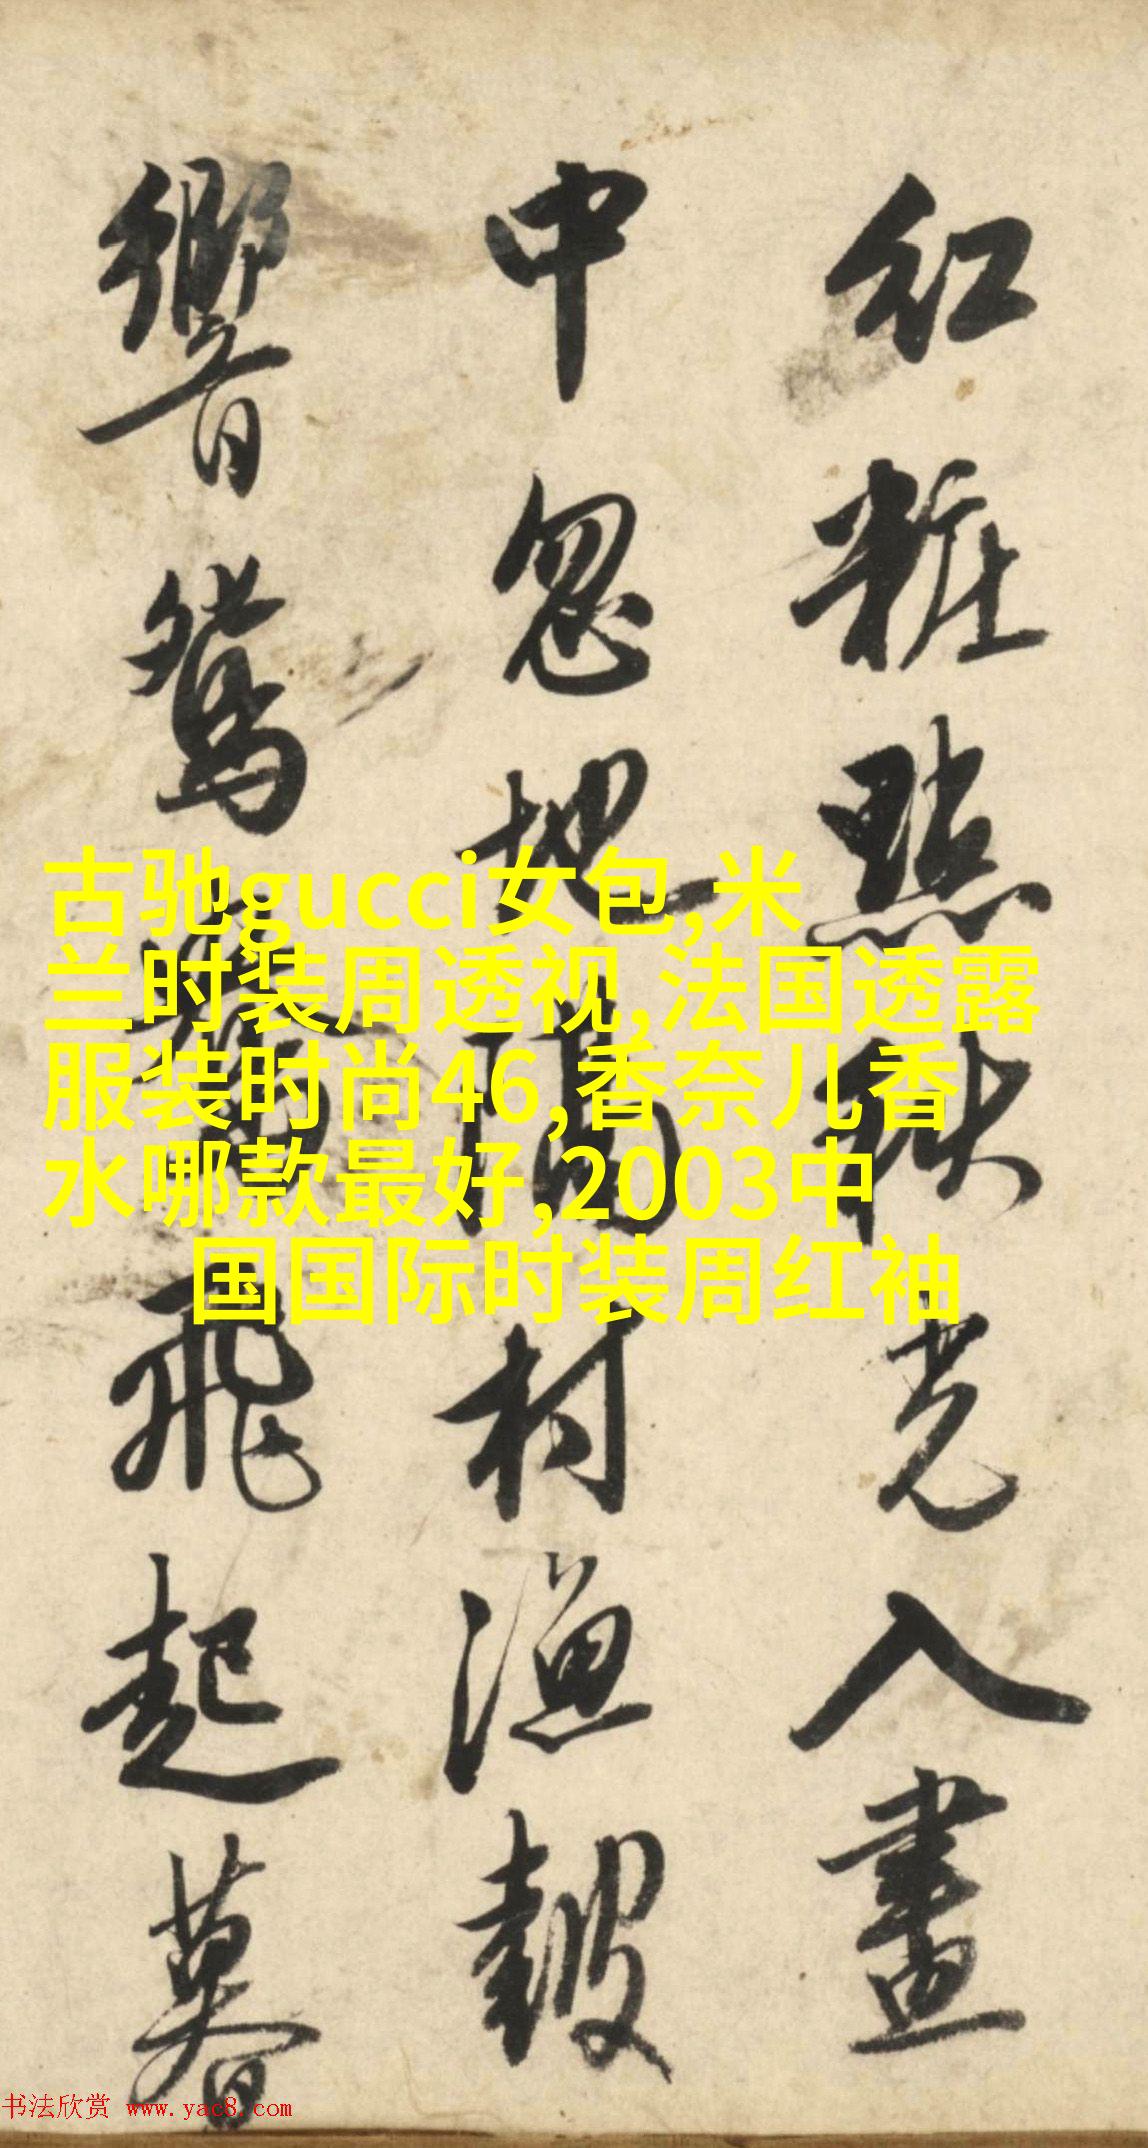 红粧點秋光入畫
中忽地隔村漁鼓
響鴛鴦飛起暮
古驰gucci女包,米
兰时装周透视,法国透露
服装时尚46,香奈儿香
水哪款最好,2003中
国国际时装周红袖
书法欣赏 www.yac8.com